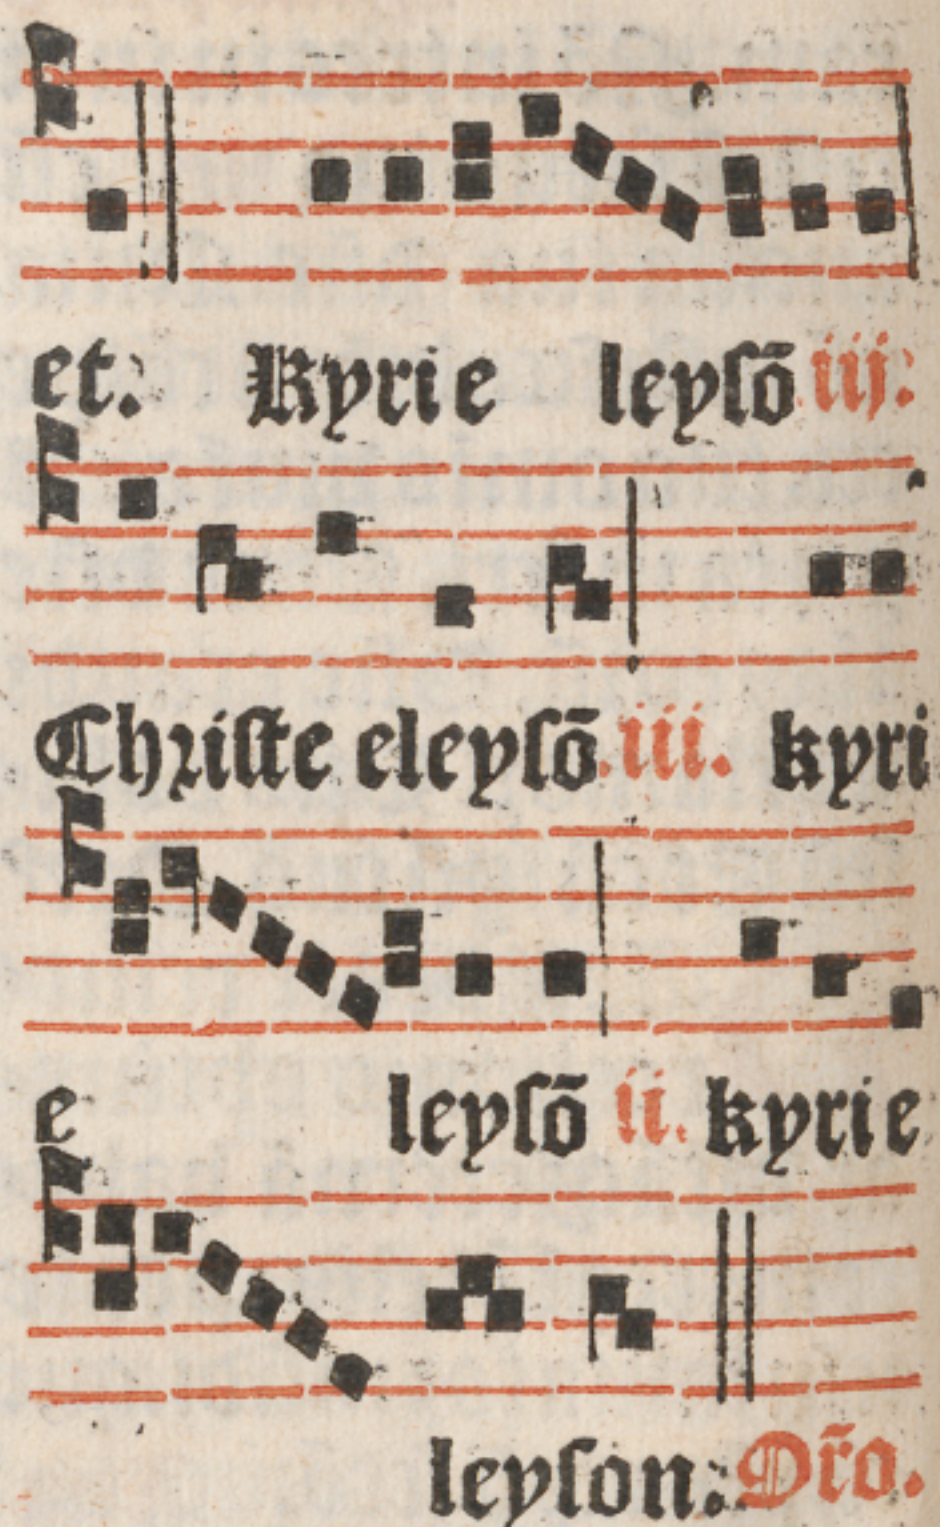 et. Kyrie leyſō iij:
Chriſte eleyſō. iii. kyri
e leyſō ii. kyrie
leyſon: Or̄o.